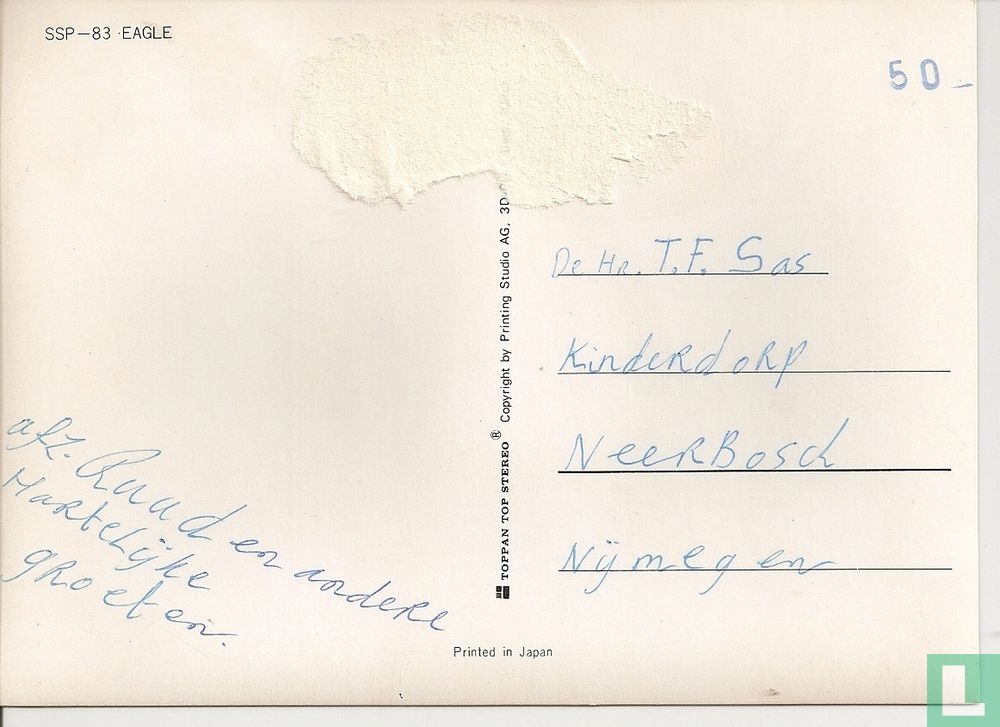 SSP-83 EAGLE
50-
TOPPAN TOP STEREO® Copyright by Printing Studio AG, 3D
De Hr. T.F. Sas
Kinderdorp
NeerBosch
Nijmegen
afz. Ruud en andere
Hartelijke
groeten.
Printed in Japan
L